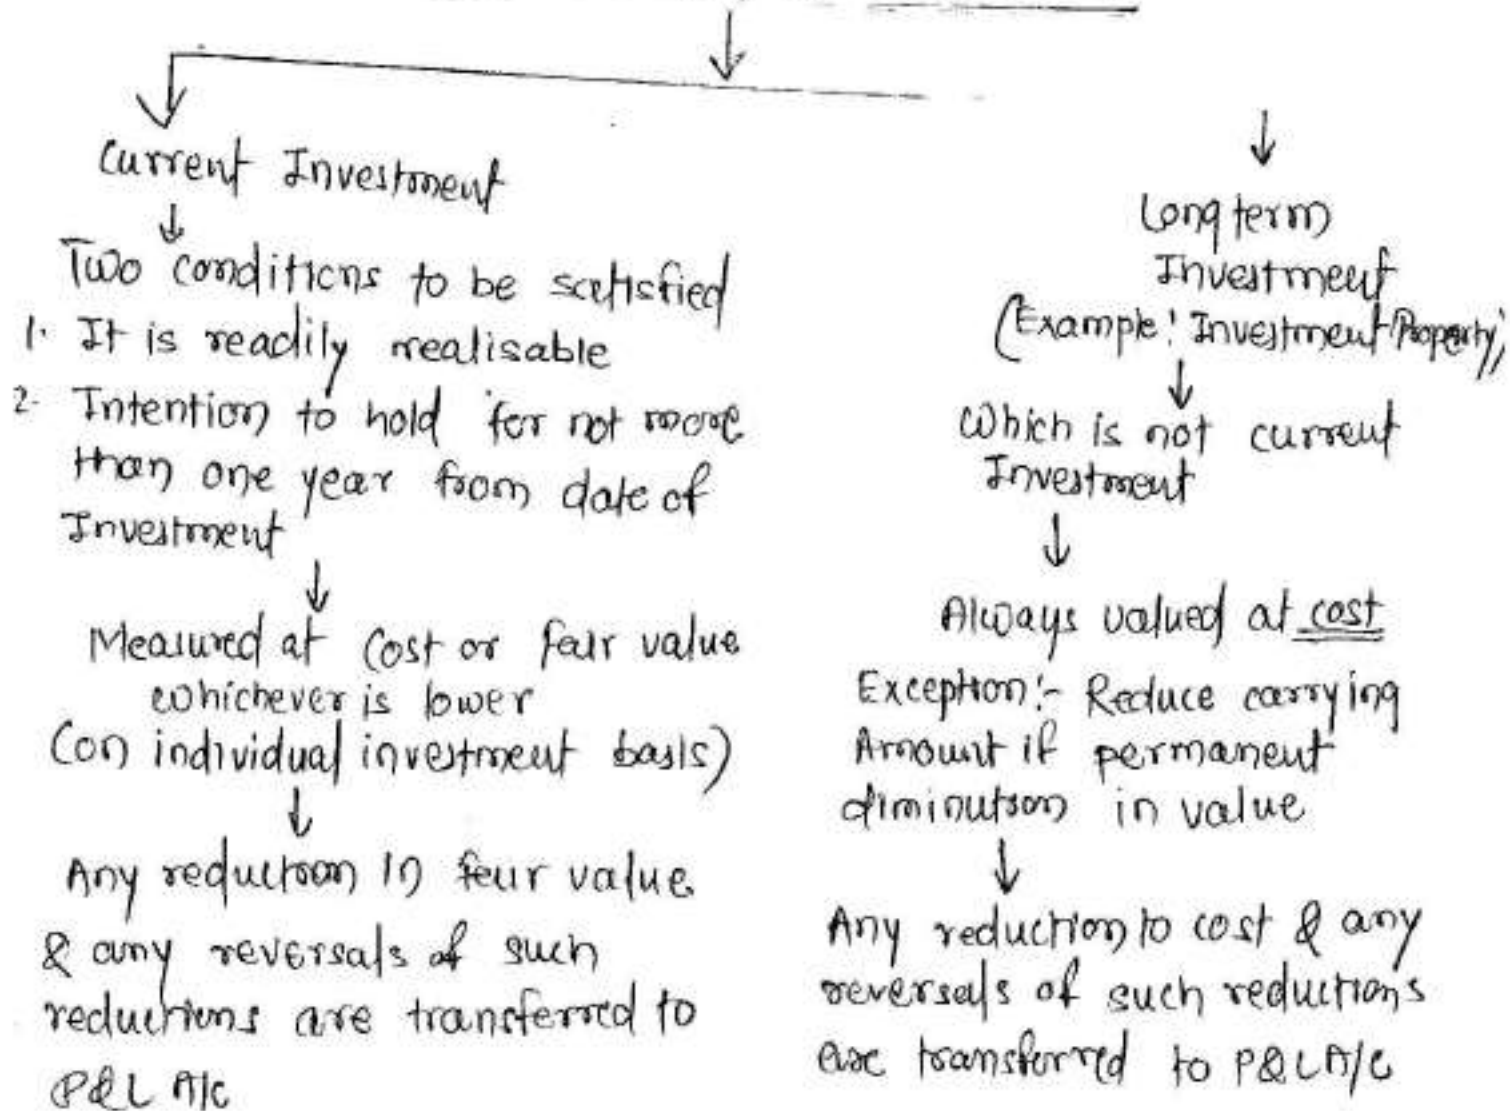 Current Investment
Two conditions to be satisfied
1. It is readily realisable
2. Intention to hold for not more
than one year from date of
Investment
Measured at Cost or fair value
whichever is lower
(on individual investment basis)
Any reduction in fair value
& any reversals of such
reductions are transferred to
P&L A/c
Long term
Investment
(Example: Investment Property)
Which is not current
Investment
Always valued at cost
Exception:- Reduce carrying
Amount if permanent
diminution in value
Any reduction to cost & any
reversals of such reductions
are transferred to P&L A/c